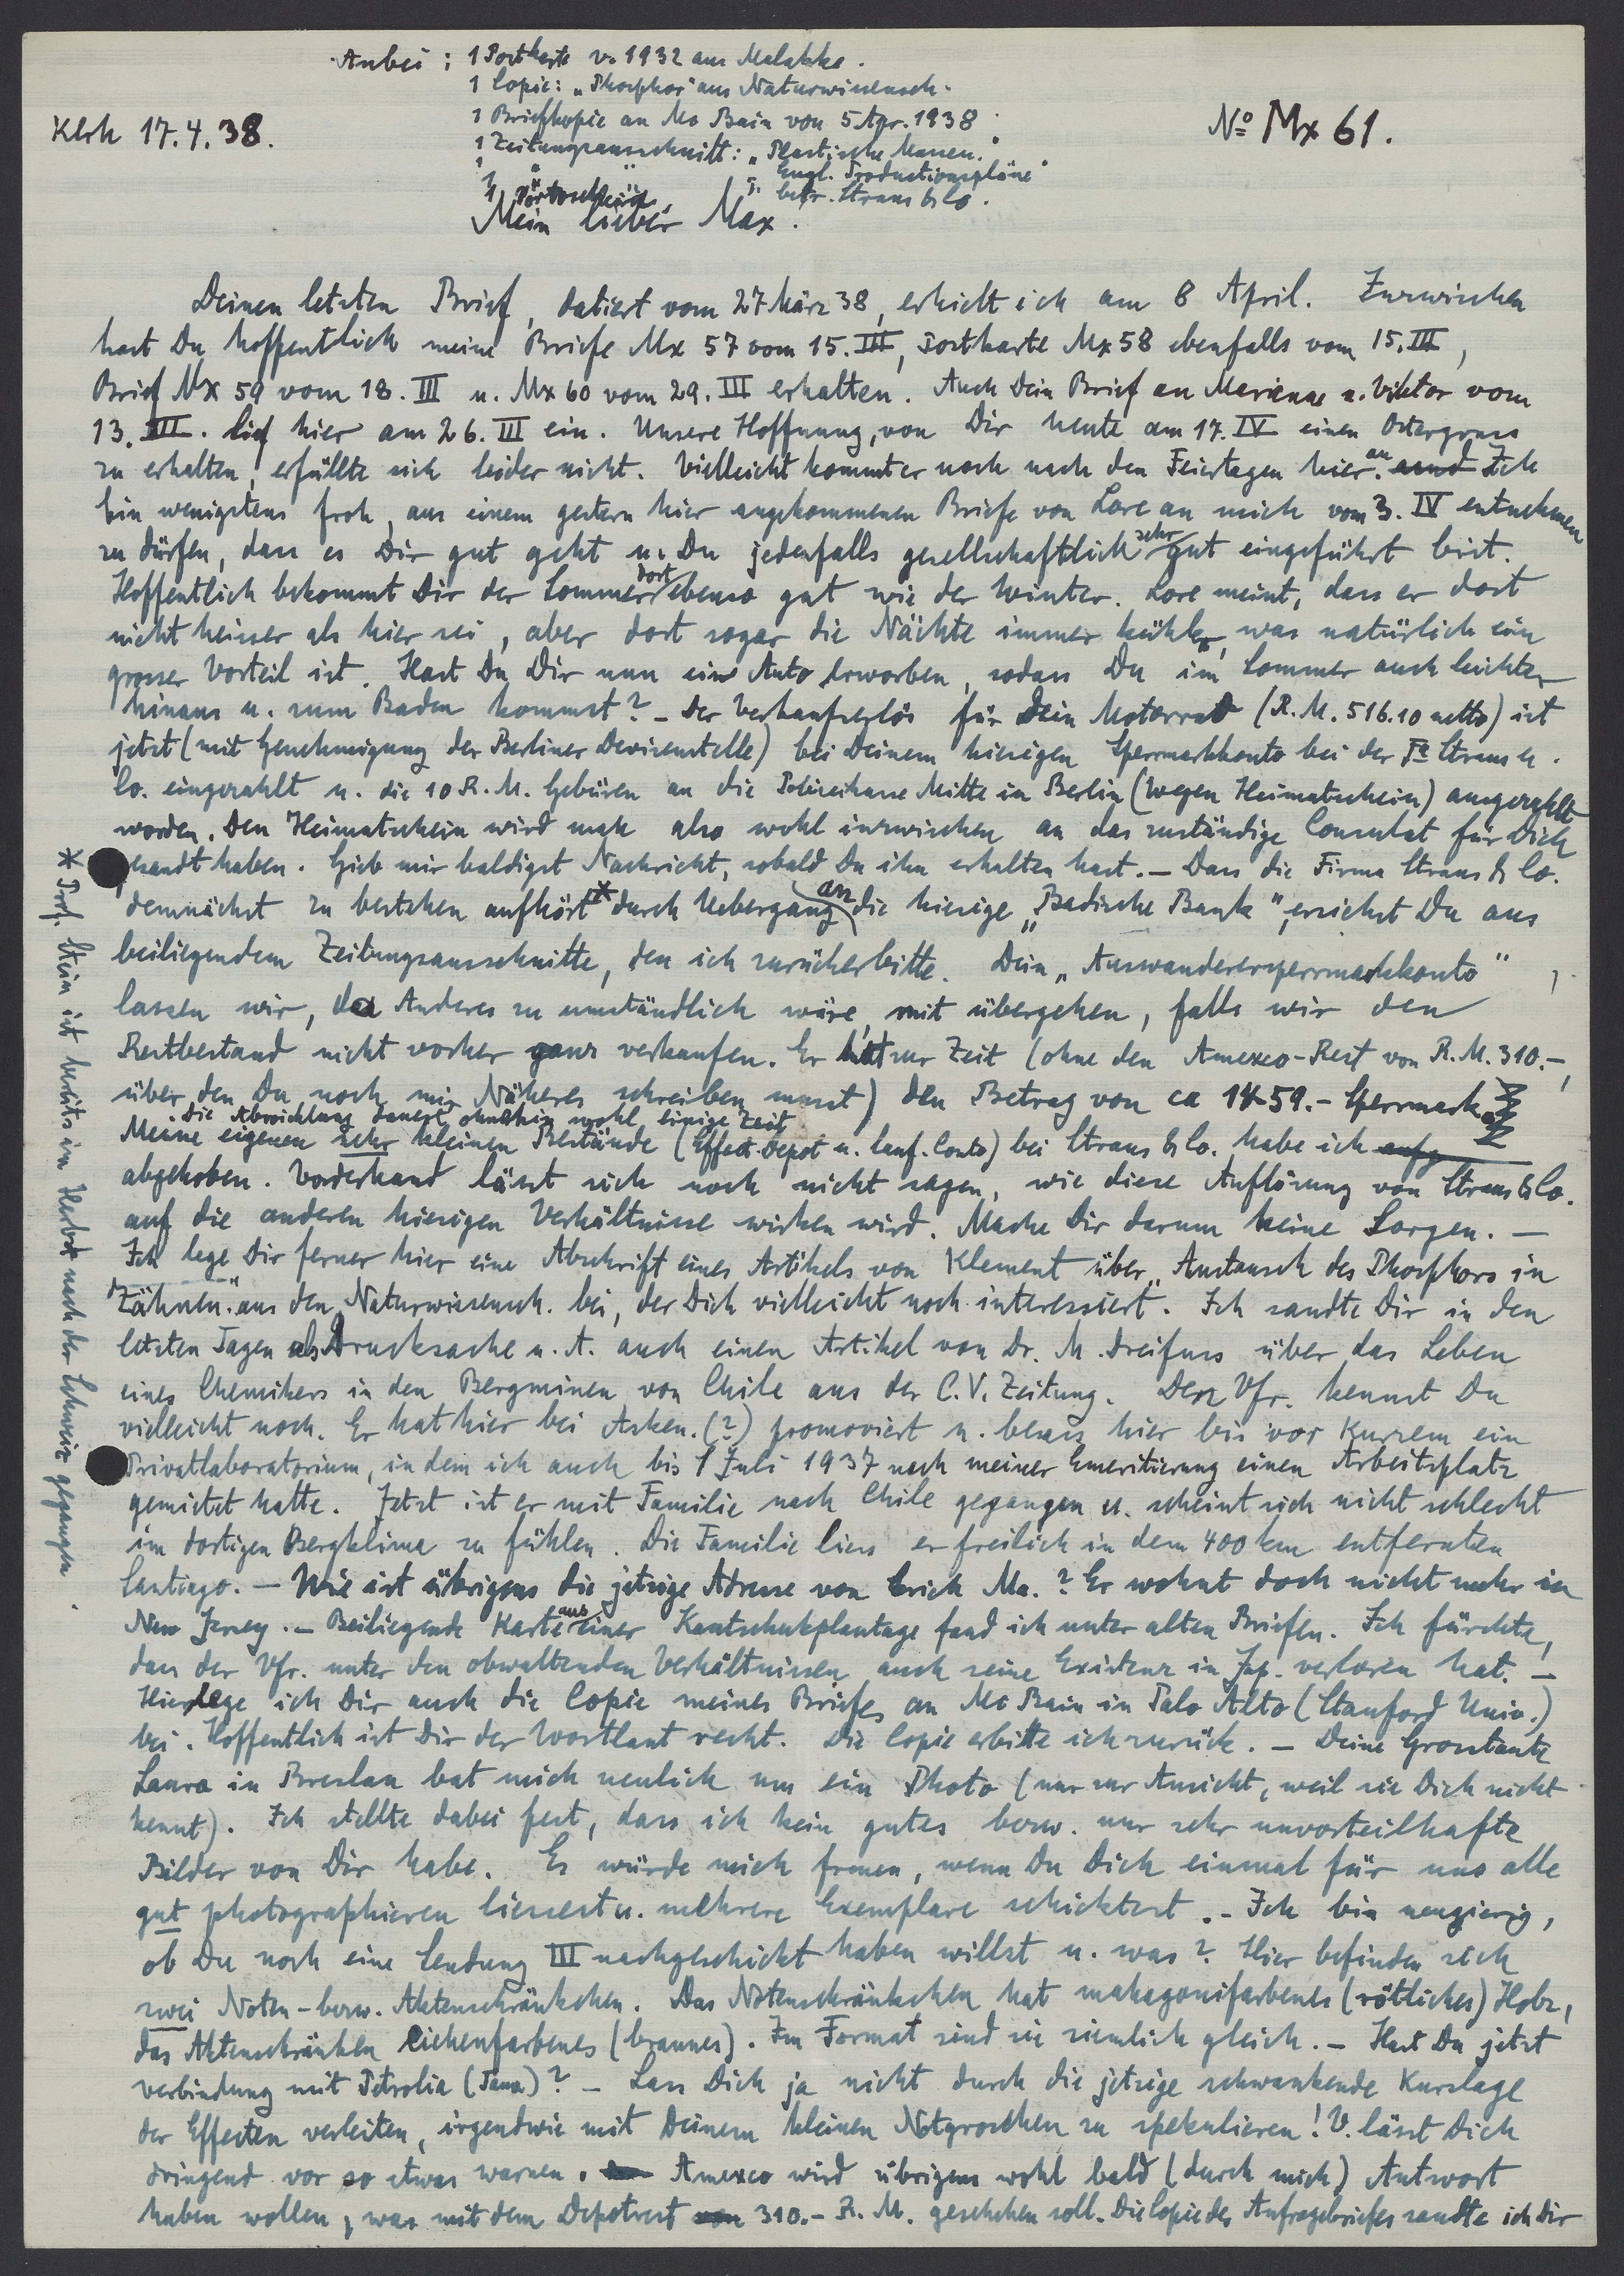 Anbei: 1 Postkarte v. 1932 aus Malakka.
1 Copie: „Phosphor" aus Naturwissensch.
1 Briefkopie an Mc Bain von 5 Apr. 1938
1 Zeitungsausschnitt: „Plastische Massen."
1 " " : „Engl. Productionspläne"
1 " " : betr. Straus & Co.
Klrh 17.4.38.
No Mx 61.
Mein lieber Max.
Deinen letzten Brief, datiert vom 27 März 38, erhielt ich am 8 April. Inzwischen
hast Du hoffentlich meine Briefe Mx 57 vom 15. III, Postkarte Mx 58 ebenfalls vom 15. III,
Brief Mx 59 vom 18. III u. Mx 60 vom 29. III erhalten. Auch Dein Brief an Marianne u. Viktor vom
13. III. lief hier am 26. III ein. Unsere Hoffnung, von Dir heute am 17. IV einen Ostergruss
zu erhalten, erfüllte sich leider nicht. Vielleicht kommt er noch nach den Feiertagen hier an. Ich
bin wenigstens froh, aus einem gestern hier angekommenen Briefe von Lore an mich vom 3. IV entnehmen
zu dürfen, dass es Dir gut geht u. Du jedenfalls gesellschaftlich sehr gut eingeführt bist.
Hoffentlich bekommt Dir der Sommer dort ebenso gut wie der Winter. Lore meint, dass er dort
nicht heisser als hier sei, aber dort sogar die Nächte immer kühler, was natürlich ein
grosser Vorteil ist. Hast Du Dir nun ein Auto erworben, sodass Du im Sommer auch leichter
hinaus u. zum Baden kommst? – Der Verkaufserlös für Dein Motorrad (R.M. 516.10 netto) ist
jetzt (mit Genehmigung der Berliner Devisenstelle) bei Deinem hiesigen Sperrmarkkonto bei der Fa Straus u.
Co. eingezahlt u. die 10 R.M. Gebüren an die Polizeikasse Mitte in Berlin (wegen Heimatschein) ausgezahlt
worden. Den Heimatschein wird man also wohl inzwischen an das zuständige Consulat für Dich
gesandt haben. Gieb mir baldigst Nachricht, sobald Du ihn erhalten hast. – Dass die Firma Straus & Co.
demnächst zu bestehen aufhört * durch Uebergang an die hiesige „Badische Bank", ersiehst Du aus
beiliegendem Zeitungsausschnitte, den ich zurückerbitte. Dein „Auswanderersperrmarkkonto"
lassen wir, da Anderes zu umständlich wäre, mit übergehen, falls wir den
Restbestand nicht vorher ganz verkaufen. Er hat zur Zeit (ohne den Amexco-Rest von R.M. 310.–,
über den Du noch mir Näheres schreiben musst) den Betrag von ca 1459.– Sperrmark.
Die Abwicklung dauert ohnehin wohl einige Zeit
Meine eigenen sehr kleinen Bestände (Effect. Depot u. lauf. Conto) bei Straus & Co. habe ich
abgehoben. Vorderhand lässt sich noch nicht sagen, wie diese Auflösung von Straus & Co.
auf die anderen hiesigen Verhältnisse wirken wird. Mache Dir darum keine Sorgen. –
Ich lege Dir ferner hier eine Abschrift eines Artikels von Klement über „Austausch des Phosphors in
Zähnen" aus den Naturwissensch. bei, der Dich vielleicht noch interessiert. Ich sandte Dir in den
letzten Tagen als Drucksache u. A. auch einen Artikel von Dr. M. Dreifuss über das Leben
eines Chemikers in den Bergminen von Chile aus der C.V. Zeitung. Den Vfr. kennst Du
vielleicht noch. Er hat hier bei Asken. (?) promoviert u. besass hier bis vor Kurzem ein
Privatlaboratorium, in dem ich auch bis 1 Juli 1937 nach meiner Emeritierung einen Arbeitsplatz
gemietet hatte. Jetzt ist er mit Familie nach Chile gegangen u. scheint sich nicht schlecht
im dortigen Bergklima zu fühlen. Die Familie liess er freilich in dem 400 km entfernten
Santiago. – Wie ist übrigens die jetzige Adresse von Erich Ma.? Er wohnt doch nicht mehr in
New Jersey. – Beiliegende Karte aus einer Kautschukplantage fand ich unter alten Briefen. Ich fürchte,
dass der Vfr. unter den obwaltenden Verhältnissen auch seine Existenz in Jap. verloren hat. –
Hier lege ich Dir auch die Copie meines Briefes an Mc Bain in Palo Alto (Stanford Univ.)
bei. Hoffentlich ist Dir der Wortlaut recht. Die Copie erbitte ich zurück. – Deine Grosstante
Laura in Breslau bat mich neulich um ein Photo (nur zur Ansicht, weil sie Dich nicht
kennt). Ich stellte dabei fest, dass ich kein gutes bezw. nur sehr unvorteilhafte
Bilder von Dir habe. Es würde mich freuen, wenn Du Dich einmal für uns alle
gut photographieren liessest u. mehrere Exemplare schicktest. – Ich bin neugierig,
ob Du noch eine Sendung III nachgeschickt haben willst u. was? Hier befinden sich
zwei Noten- bezw. Aktenschränkchen. Das Notenschränkchen hat mahagonifarbenes (rötliches) Holz,
das Aktenschränken eichenfarbenes (braunes). Im Format sind sie ziemlich gleich. – Hast Du jetzt
Verbindung mit Petrolia (Pana)? – Lass Dich ja nicht durch die jetzige schwankende Kurslage
der Effecten verleiten, irgendwie mit Deinem kleinen Notgroschen zu spekulieren! V. lässt Dich
dringend vor so etwas warnen. Amexco wird übrigens wohl bald (durch mich) Antwort
haben wollen, was mit dem Depotrest von 310.– R.M. geschehen soll. Die Copie des Anfragebriefes sandte ich Dir
* Prof. Stein ist bereits im Herbst nach der Schweiz gegangen.